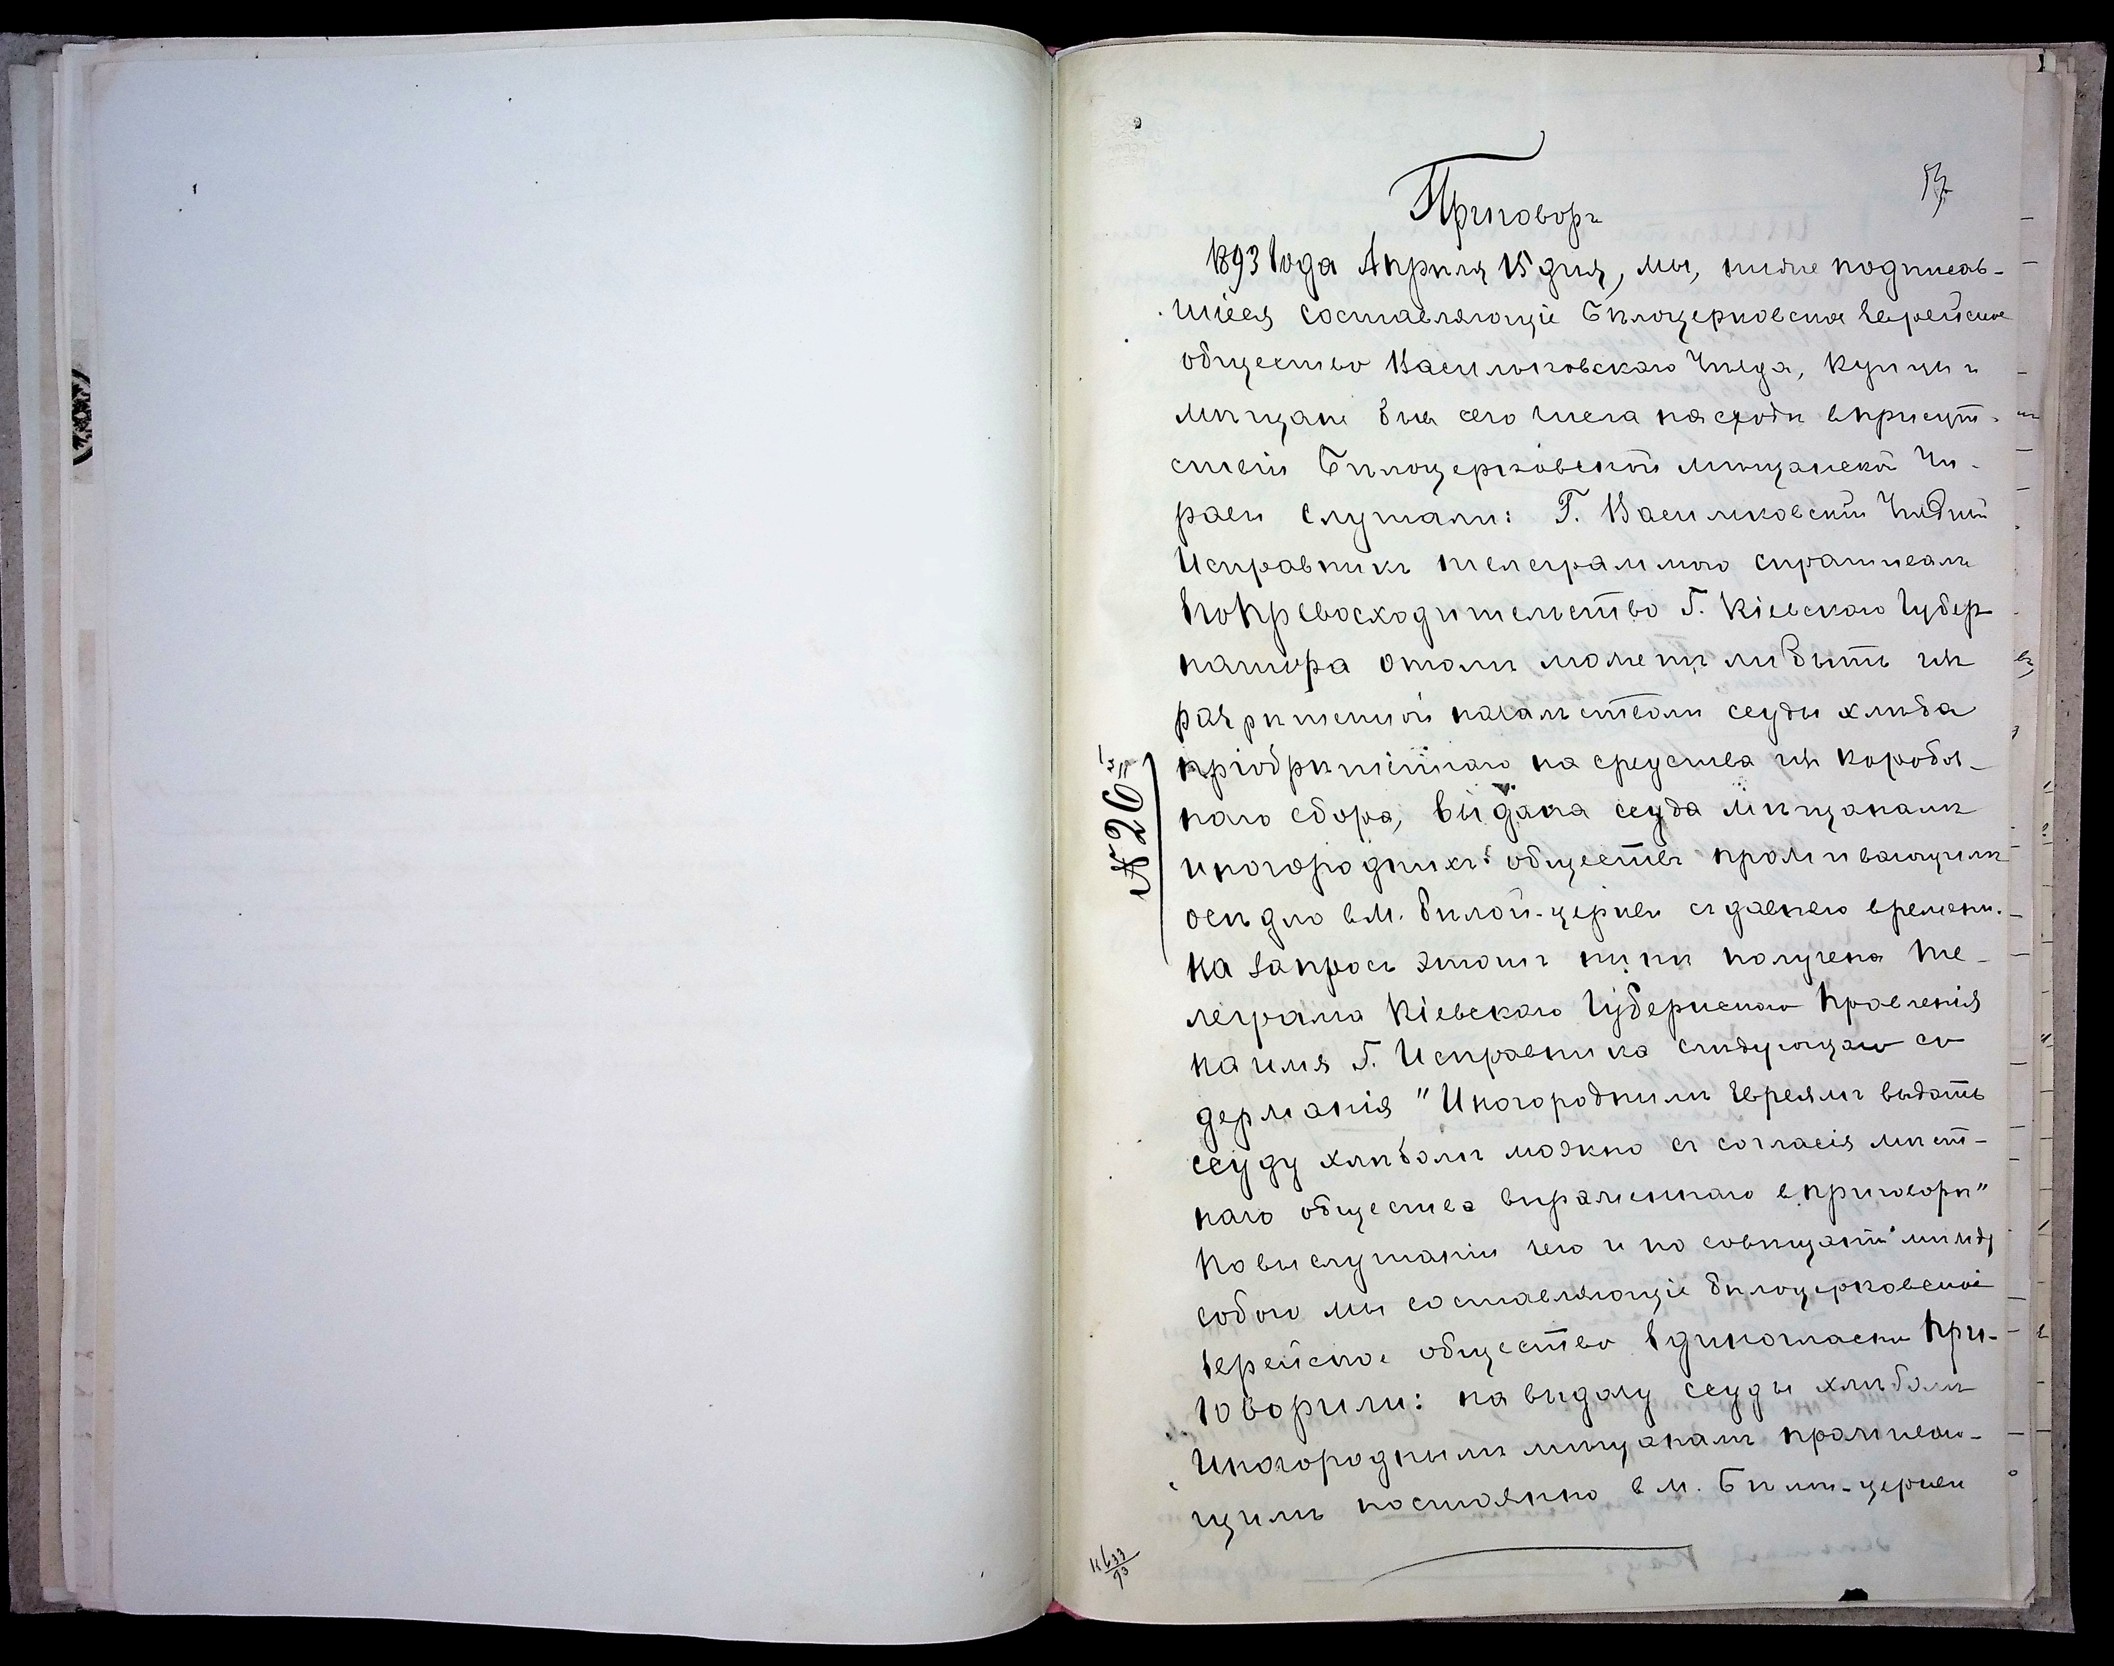 Приговоръ
1893 Года Апрѣля 15 дня, мы, ниже подписав-
шіеся составляющіе Бѣлоцерковское Еврейское
общество Васильковскаго Уѣзда, купцы и
мѣщане бывъ сего числа на сходѣ въ присут-
ствіи Бѣлоцерковской мѣщанской Уп-
равы слушали: Г. Васильковскій Уѣздный
Исправникъ телеграммою спрашивалъ
Его Превосходительство Г. Кіевскаго Губер
натора о томъ можетъ ли быть изъ
разрѣшенной начальствомъ ссуды хлѣба
пріобрѣтеннаго на средства изъ коробоч-
наго сбора, выдана ссуда мѣщанамъ
иногородныхъ обществъ проживающимъ
осѣдло въ м. Бѣлой-церкви съ давнего времени.
На Запросъ этотъ нынѣ получена те-
леграма Кіевскаго Губернскаго Правленія
на имя Г. Исправника слѣдующаго со
держанія "Иногороднимъ Евреямъ выдать
ссуду хлѣбомъ можно съ согласія мѣст-
наго общества выраженнаго въ приговорѣ"
По выслушаніи чего и по совѣщаніи между
собою мы составляющіе Бѣлоцерковское
Еврейское общество Единогласно При-
Говорили: на выдачу ссуды хлѣбомъ
Иногороднымъ мѣщанамъ проживаю-
щимъ постоянно въ м. Бѣлой-церкви
№ 26